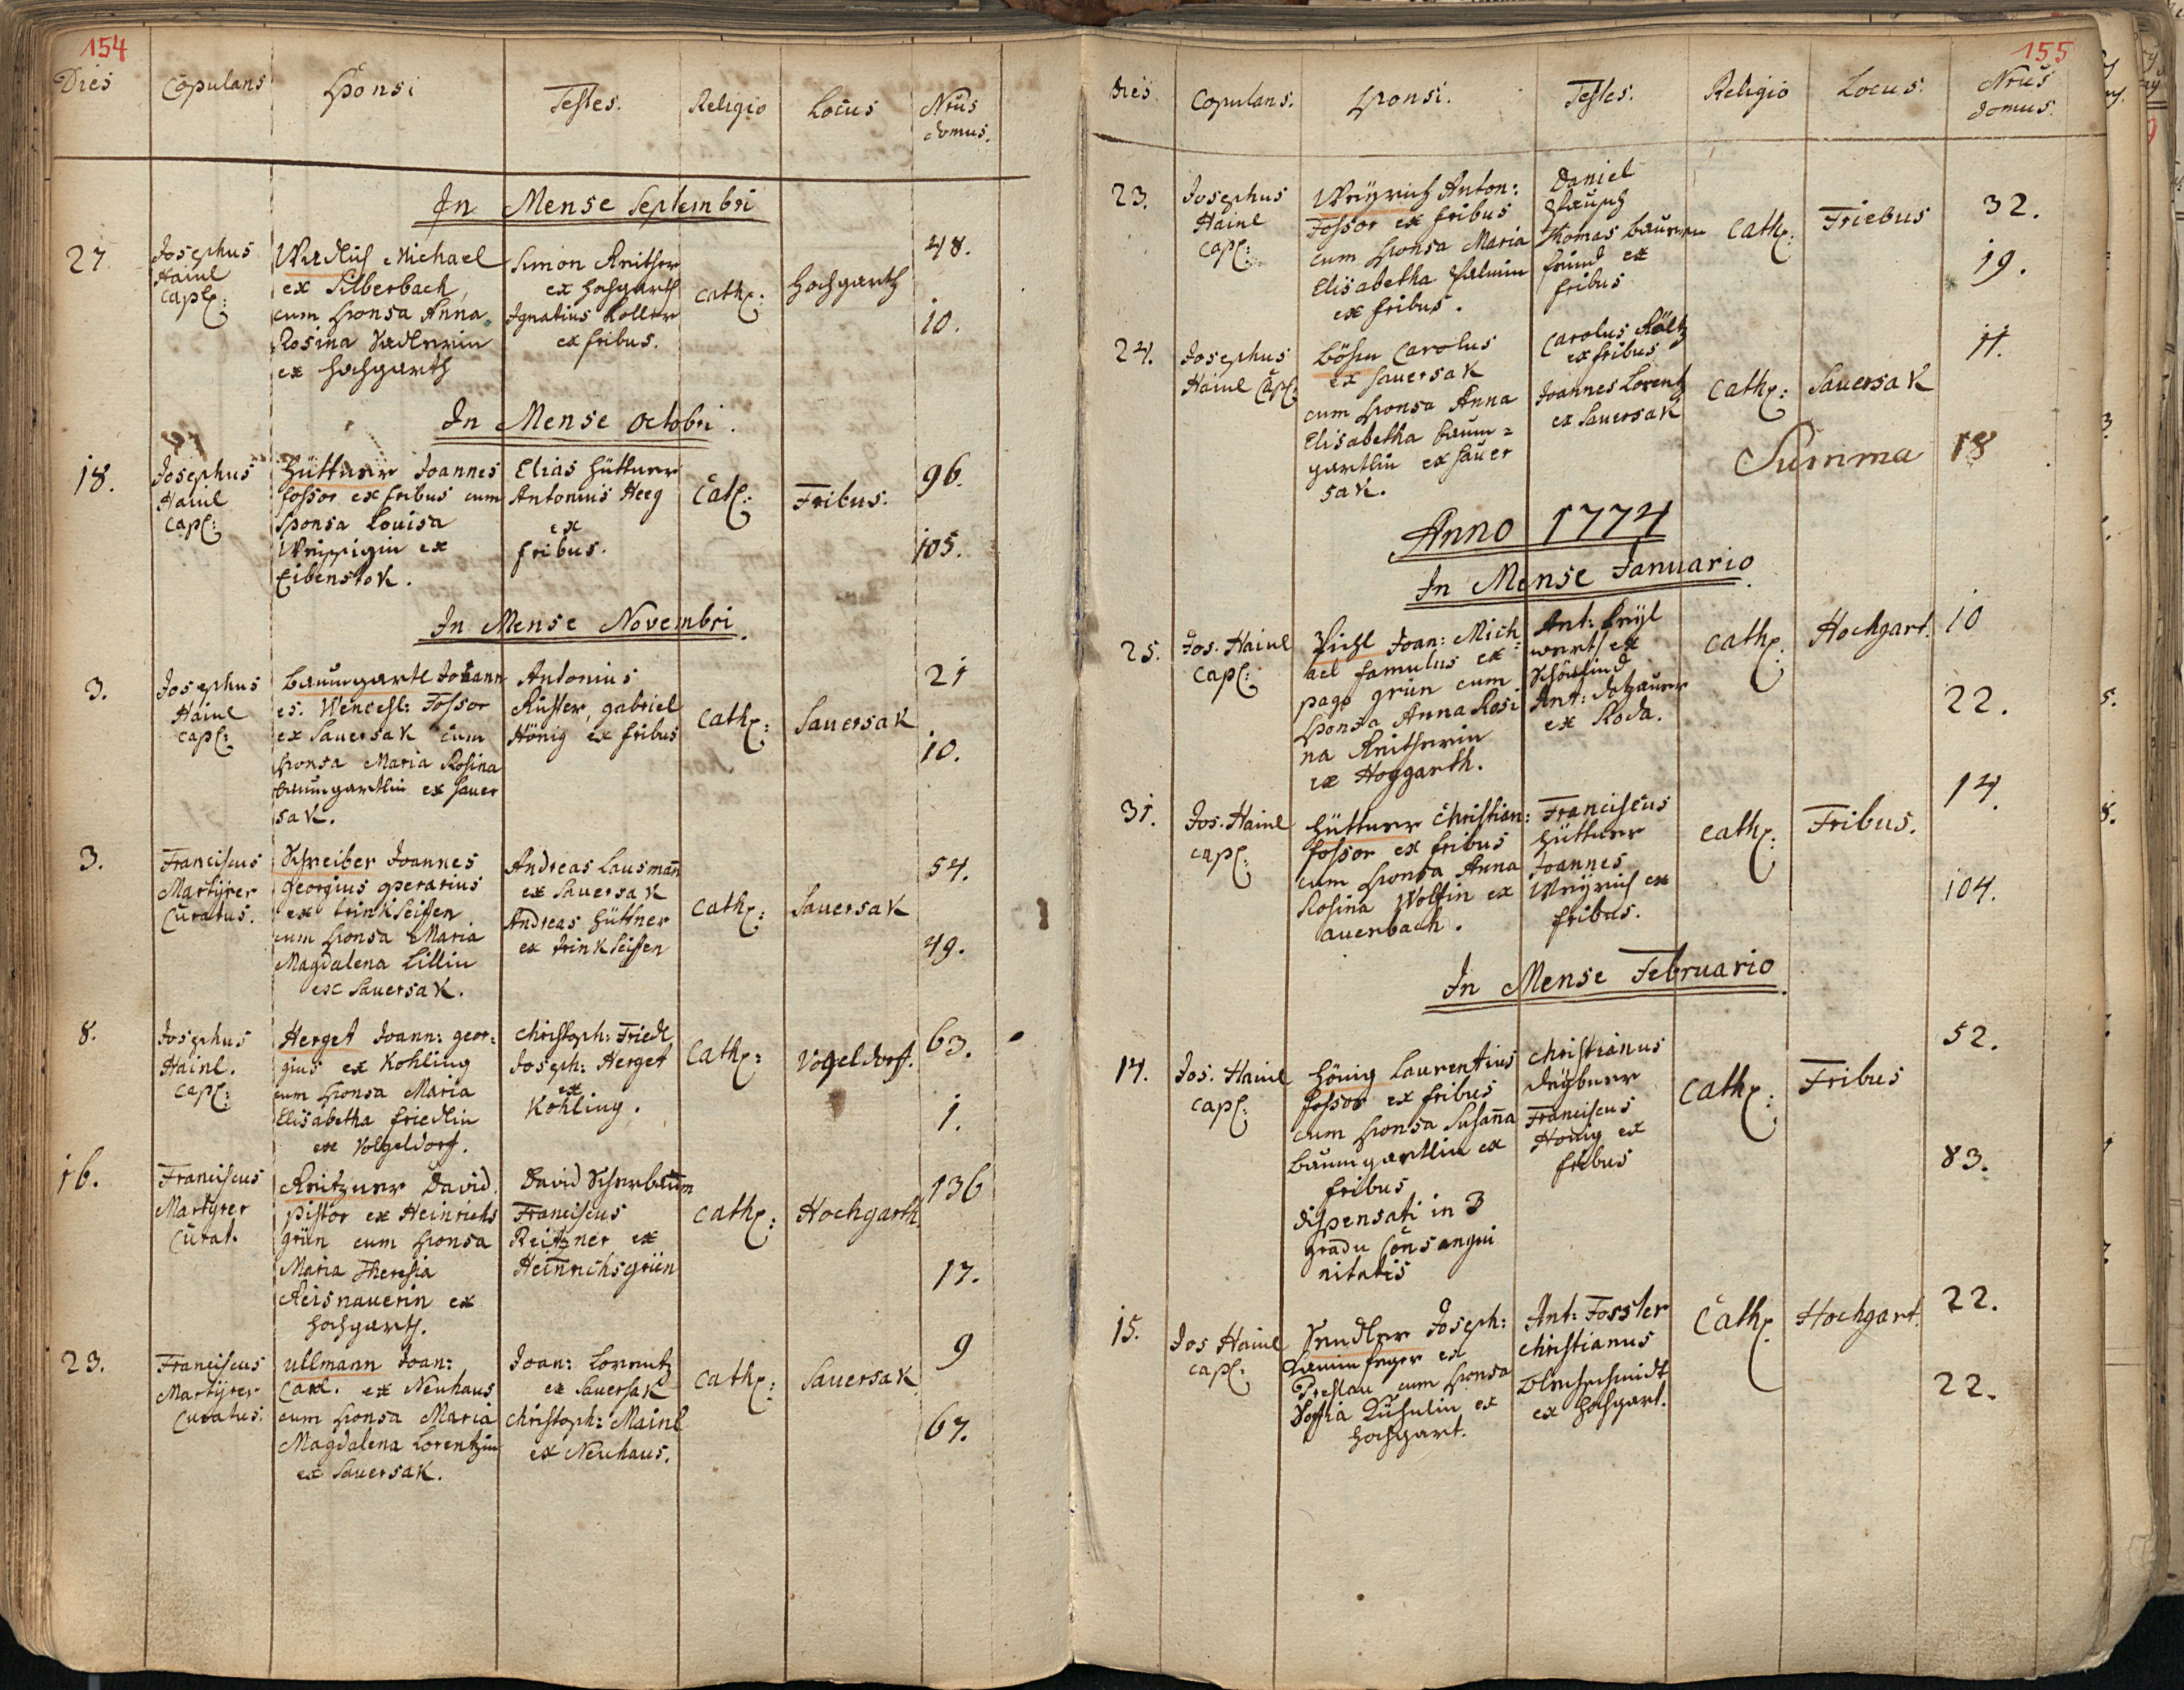 154
Dies Copulans Sponsi Testes. Religio Locus Nrus domus.
In Mense Septembri
27 Josephus Hainl Capl:
Michael
ex Silberbach
cum sponsa Anna
Rosina
ex Hochgarth
Simon Reither
ex Hochgarth
Ignatius Koller
ex fribus.
Cath: Hochgarth 48.
10.
In Mense Octobri.
18. Josephus Hainl Capl:
Hüttner Joannes
fossor ex fribus cum
sponsa Louisa
ex
Eibenstok.
Elias Hüttner
Antonius Heeg
ex
fribus.
Cat: Fribus. 96.
105.
In Mense Novembri.
3. Josephus Hainl Capl:
Baumgartl Johann
es. Wencesl: Fossor
ex Sauersak cum
sponsa Maria Rosina
Baumgartlin ex Sauer
sak.
Antonius
gabriel
Hönig ex fribus
Cath: Sauersak 21
10.
3. Franciscus Martÿrer Curatus.
Schreiber Joannes
georgius operarius
ex trinkseifen
cum sponsa Maria
Magdalena Lillin
ex Sauersak.
Andreas Lausman̄
ex Sauersak
Andreas Hüttner
ex trinkseiffen
Cath: Sauersak 54.
49.
8. Josephus Hainl. Capl:
Herget Joann: geor:
gius ex Kohling
cum sponsa Maria
Elisabetha friedlin
ex Volgeldorf.
Christoph: Friedl
Joseph: Herget
ex
Kohling.
Cath: Vogeldorf. 63.
1.
16. Franciscus Martyrer Curat.
Reitzner David.
pistor ex Heinrichs
grün cum sponsa
Maria Theresia
Reisnauerin ex
Hochgarth.
David Scherbaum
Franciscus
Reitzner ex
Heinrichsgrün
Cath: Hochgarth 136
17.
23. Franciscus Martÿrer Curatus.
ullmann Joan:
Carl. ex Neuhaus
cum sponsa Maria
Magdalena Lorentzin
ex Sauersak.
Joan: Lorentz
ex Sauersak
Christoph: Mainl
ex Neuhaus.
Cath: Sauersak 9
67.
155
Dies Copulans. Sponsi. Testes. Religio Locus. Nrus domus.
23. Josephus Hainl Capl:
Weÿrich Anton:
Fossor ex fribus
cum sponsa Maria
Elisabetha
ex fribus.
Daniel
Thomas
ex
fribus
Cath: Friebus 32.
19.
24. Josephus Hainl Capl:
Böhm Carolus
ex Sauersak
cum sponsa Anna
Elisabetha Baum=
gartlin ex Sauer
sak.
Carolus Röltz
ex fribus
Joannes Lorentz
ex Sauersak
Cath: Sauersak 11.
Summa 18
Anno 1774
In Mense Januario.
25. Jos. Hainl Capl:
Pichl Joan: Mich
ael famulus ex
pago grün cum
sponsa Anna Rosi
na Reitherin
ex Hoggarth.
Ant:
ex
Schönlind
Ant: Dotzauer
ex Roda.
Cath: Hochgart. 10
22.
31. Jos. Hainl capl:
Hüttner Christian:
fossor ex fribus
cum sponsa Anna
Rosina Wolfin ex
auerbach.
Franciscus
Hüttner
Joannes
Weÿrich ex
fribus.
Cath: Fribus. 14.
104.
In Mense Februario.
14. Jos. Hainl capl:
Hönig Laurentius
fossor ex fribus
cum sponsa Susan̄a
Baumgartlin ex
fribus
dispensati in 3
gradu Consangui
nitatis
Christianus
Franciscus
Hönig ex
fribus
Cath: Fribus 52.
83.
15. Jos Hainl capl:
Joseph:
ex
Preslau cum sponsa
Sophia ex
Hochgart.
Ant: Fossler
Christianus
ex Hochgart.
Cath: Hochgart. 22.
22.